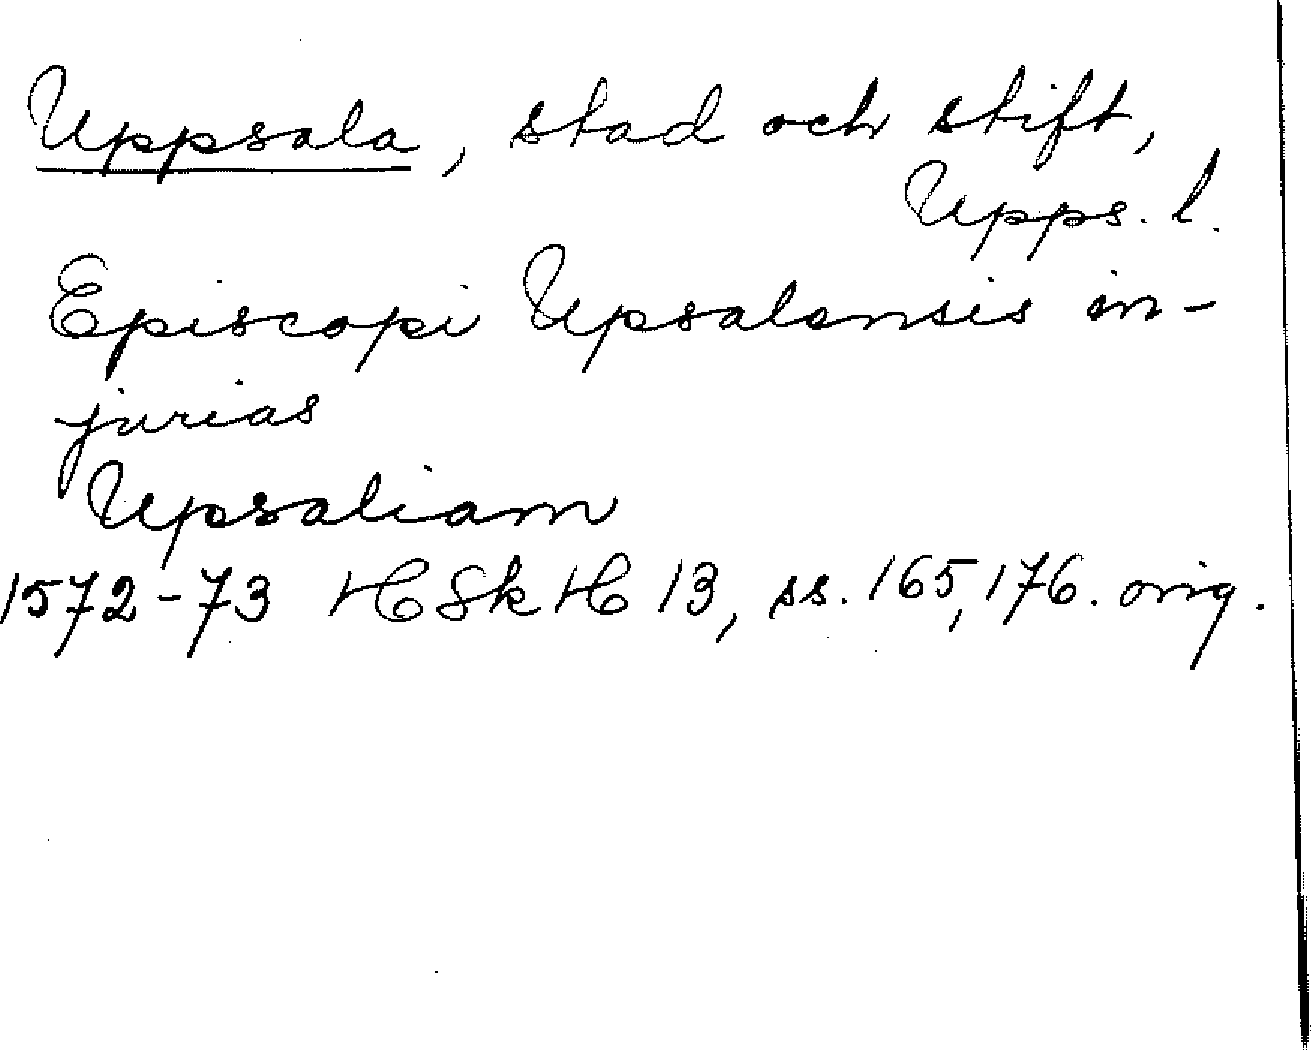 Uppsala, stad och stift,
Upps. l.
Episcopi Upsalensis in-
jurias
Upsaliam
1572-73 HSkH 13, ss. 165, 176. orig.